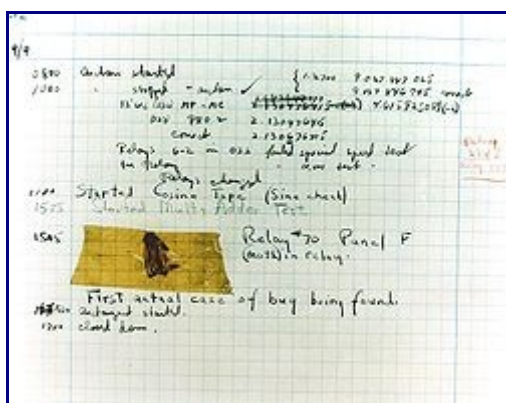 9/9
0800 antan started
1000 " stopped - antan ✓ { 1.2700 9.037 847 025
9.037 846 795 correct
13"uc (032) MP - MC 4.615925059(-2)
033 PRO 2 2.130476415
correct 2.130676415
Relays 6-2 in 033 failed special speed test
in relay " test .
Relays changed
1100 Started Cosine Tape (Sine check)
1525 Started Multi Adder Test.
1545 Relay #70 Panel F
(moth) in relay.
First actual case of bug being found.
antangent started.
1700 closed down.